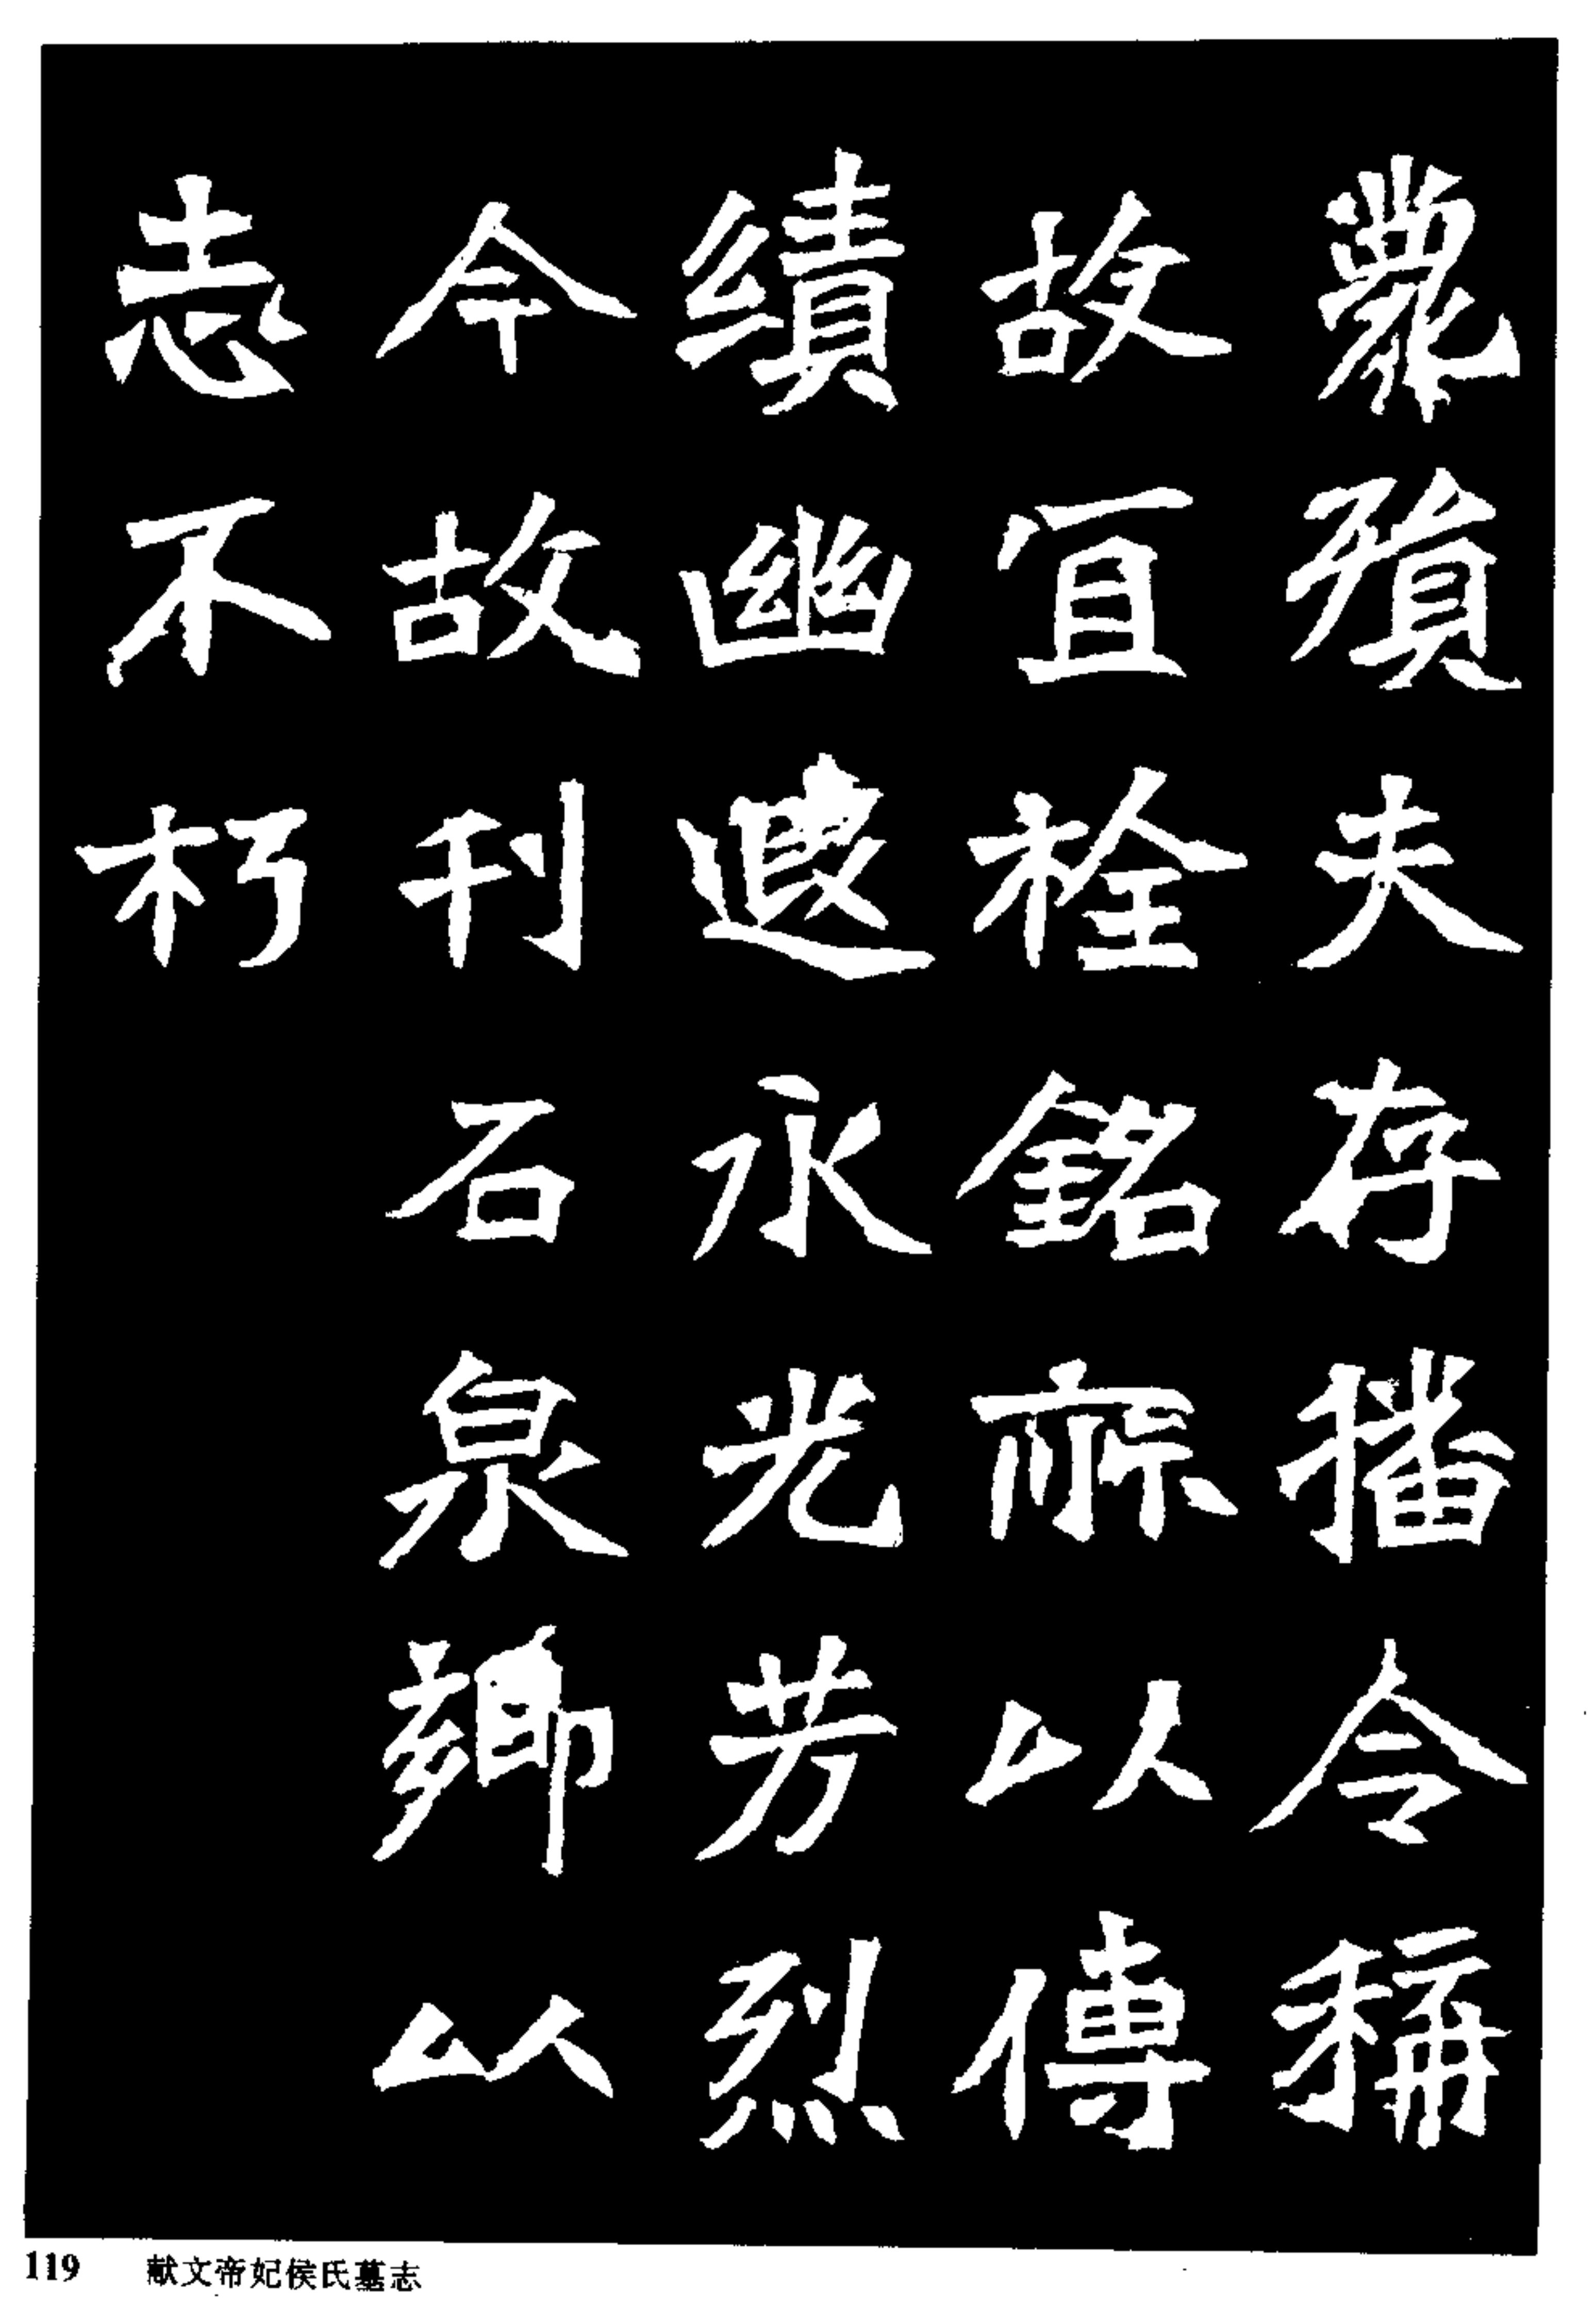 殞夫存播令稱
故宜旌銘所以傳
績幽遐永光芳烈
今故刊石泉鄉以
志不朽
119 献文帝妃侯氏墓志